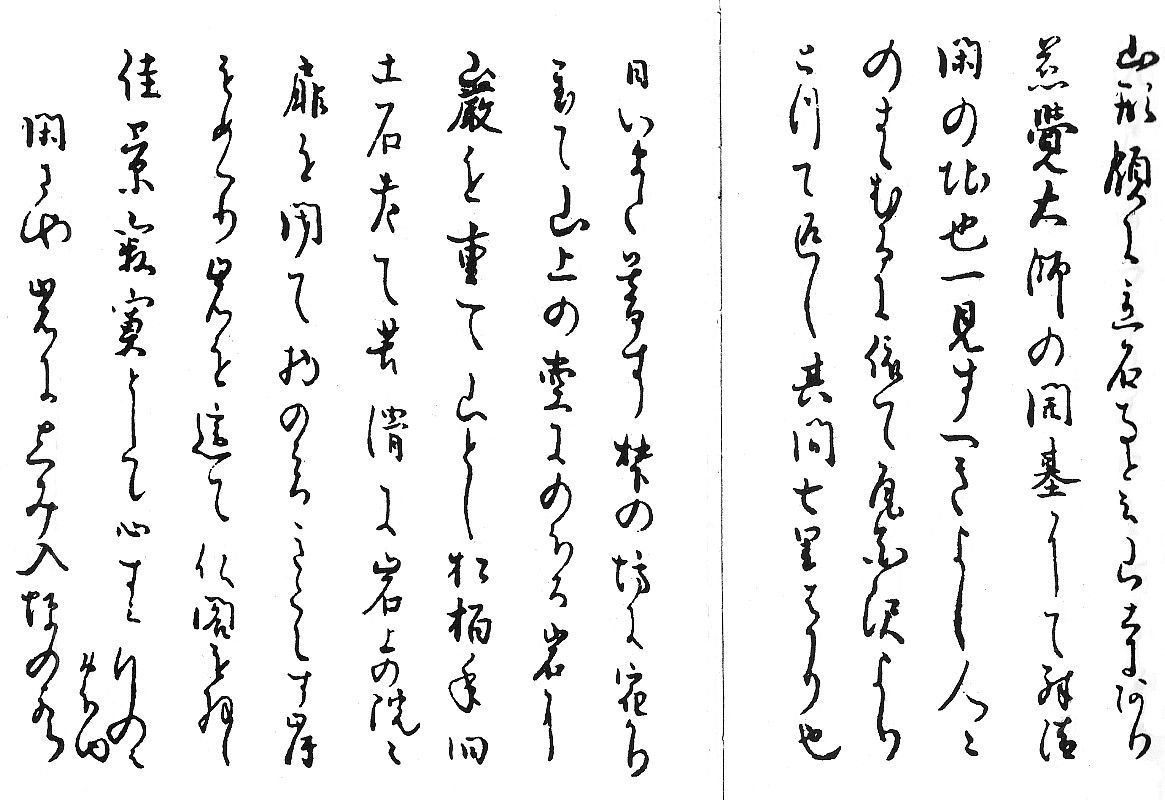 山形領に立石寺と云山寺あり
慈覺大師の開基にして殊清
閑の地也一見すへきよし人〻
のすゝむるに依て尾花沢より
とつて返し其間七里はかり也
日いまた暮す梺の坊に宿かり
置て山上の堂にのほる岩に
巖を重て山とし松柏年旧
土石老て苔滑に岩上の院〻
扉を閉て物の音きこえす岸
をめくり岩を這て仏閣を拝し
佳景寂寞として心すみ行のみ
おほゆ
閑さや岩にしみ入蝉の声